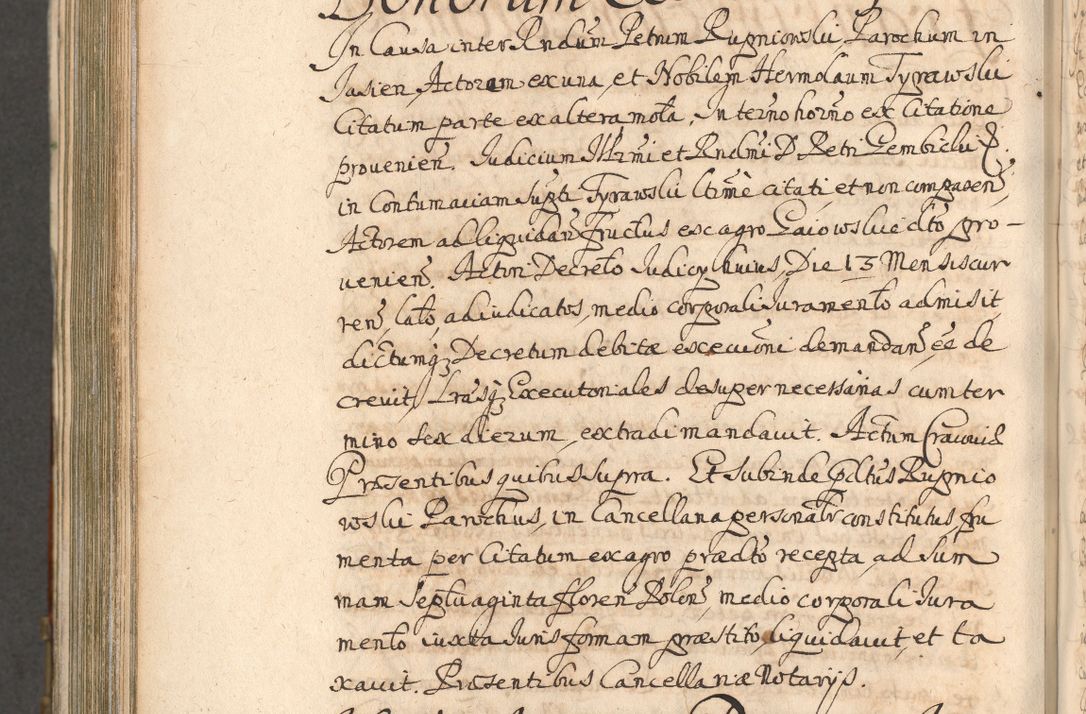 In Causa inter Rndum Petrum Rupniowski, Parochum in
Jasien, Actorem ex una, et Nobilem Hermolaum Tyrawski
Citatum parte ex altera mota, In termo horno ex Citatione
provenien. Judicium Illrmi et Rndmi D Petri Gembicki P.
in Contumaciam supti Tyrawski ltime citati, et non comparen,
Actorem ad liquidan fructus ex agro Gaiowskie dto pro-
venien. Actori Decreto Judicy huius, Die 13 Mensis cur
ren, lato, adiudicatos, medio corporali Juramento admisit
dictumq Decretum debitæ execuoni demandan ee de
crevit, Lrasq Executoriales desuper necessarias cum ter
mino sex dierum, extradi mandavit. Actum Cracoviæ
Præsentibus quibus supra. Et subinde pdtus Rupnio
wski Parochus, in Cancellaria personalr constitutus fru
menta per Citatum ex agro prædto recepta, ad sum
mam septuaginta floren Polon, medio corporali Jura
mento iuxta Juris formam præstito, liquidavit, et ta
xavit. Præsentibus Cancellariæ Notarijs.